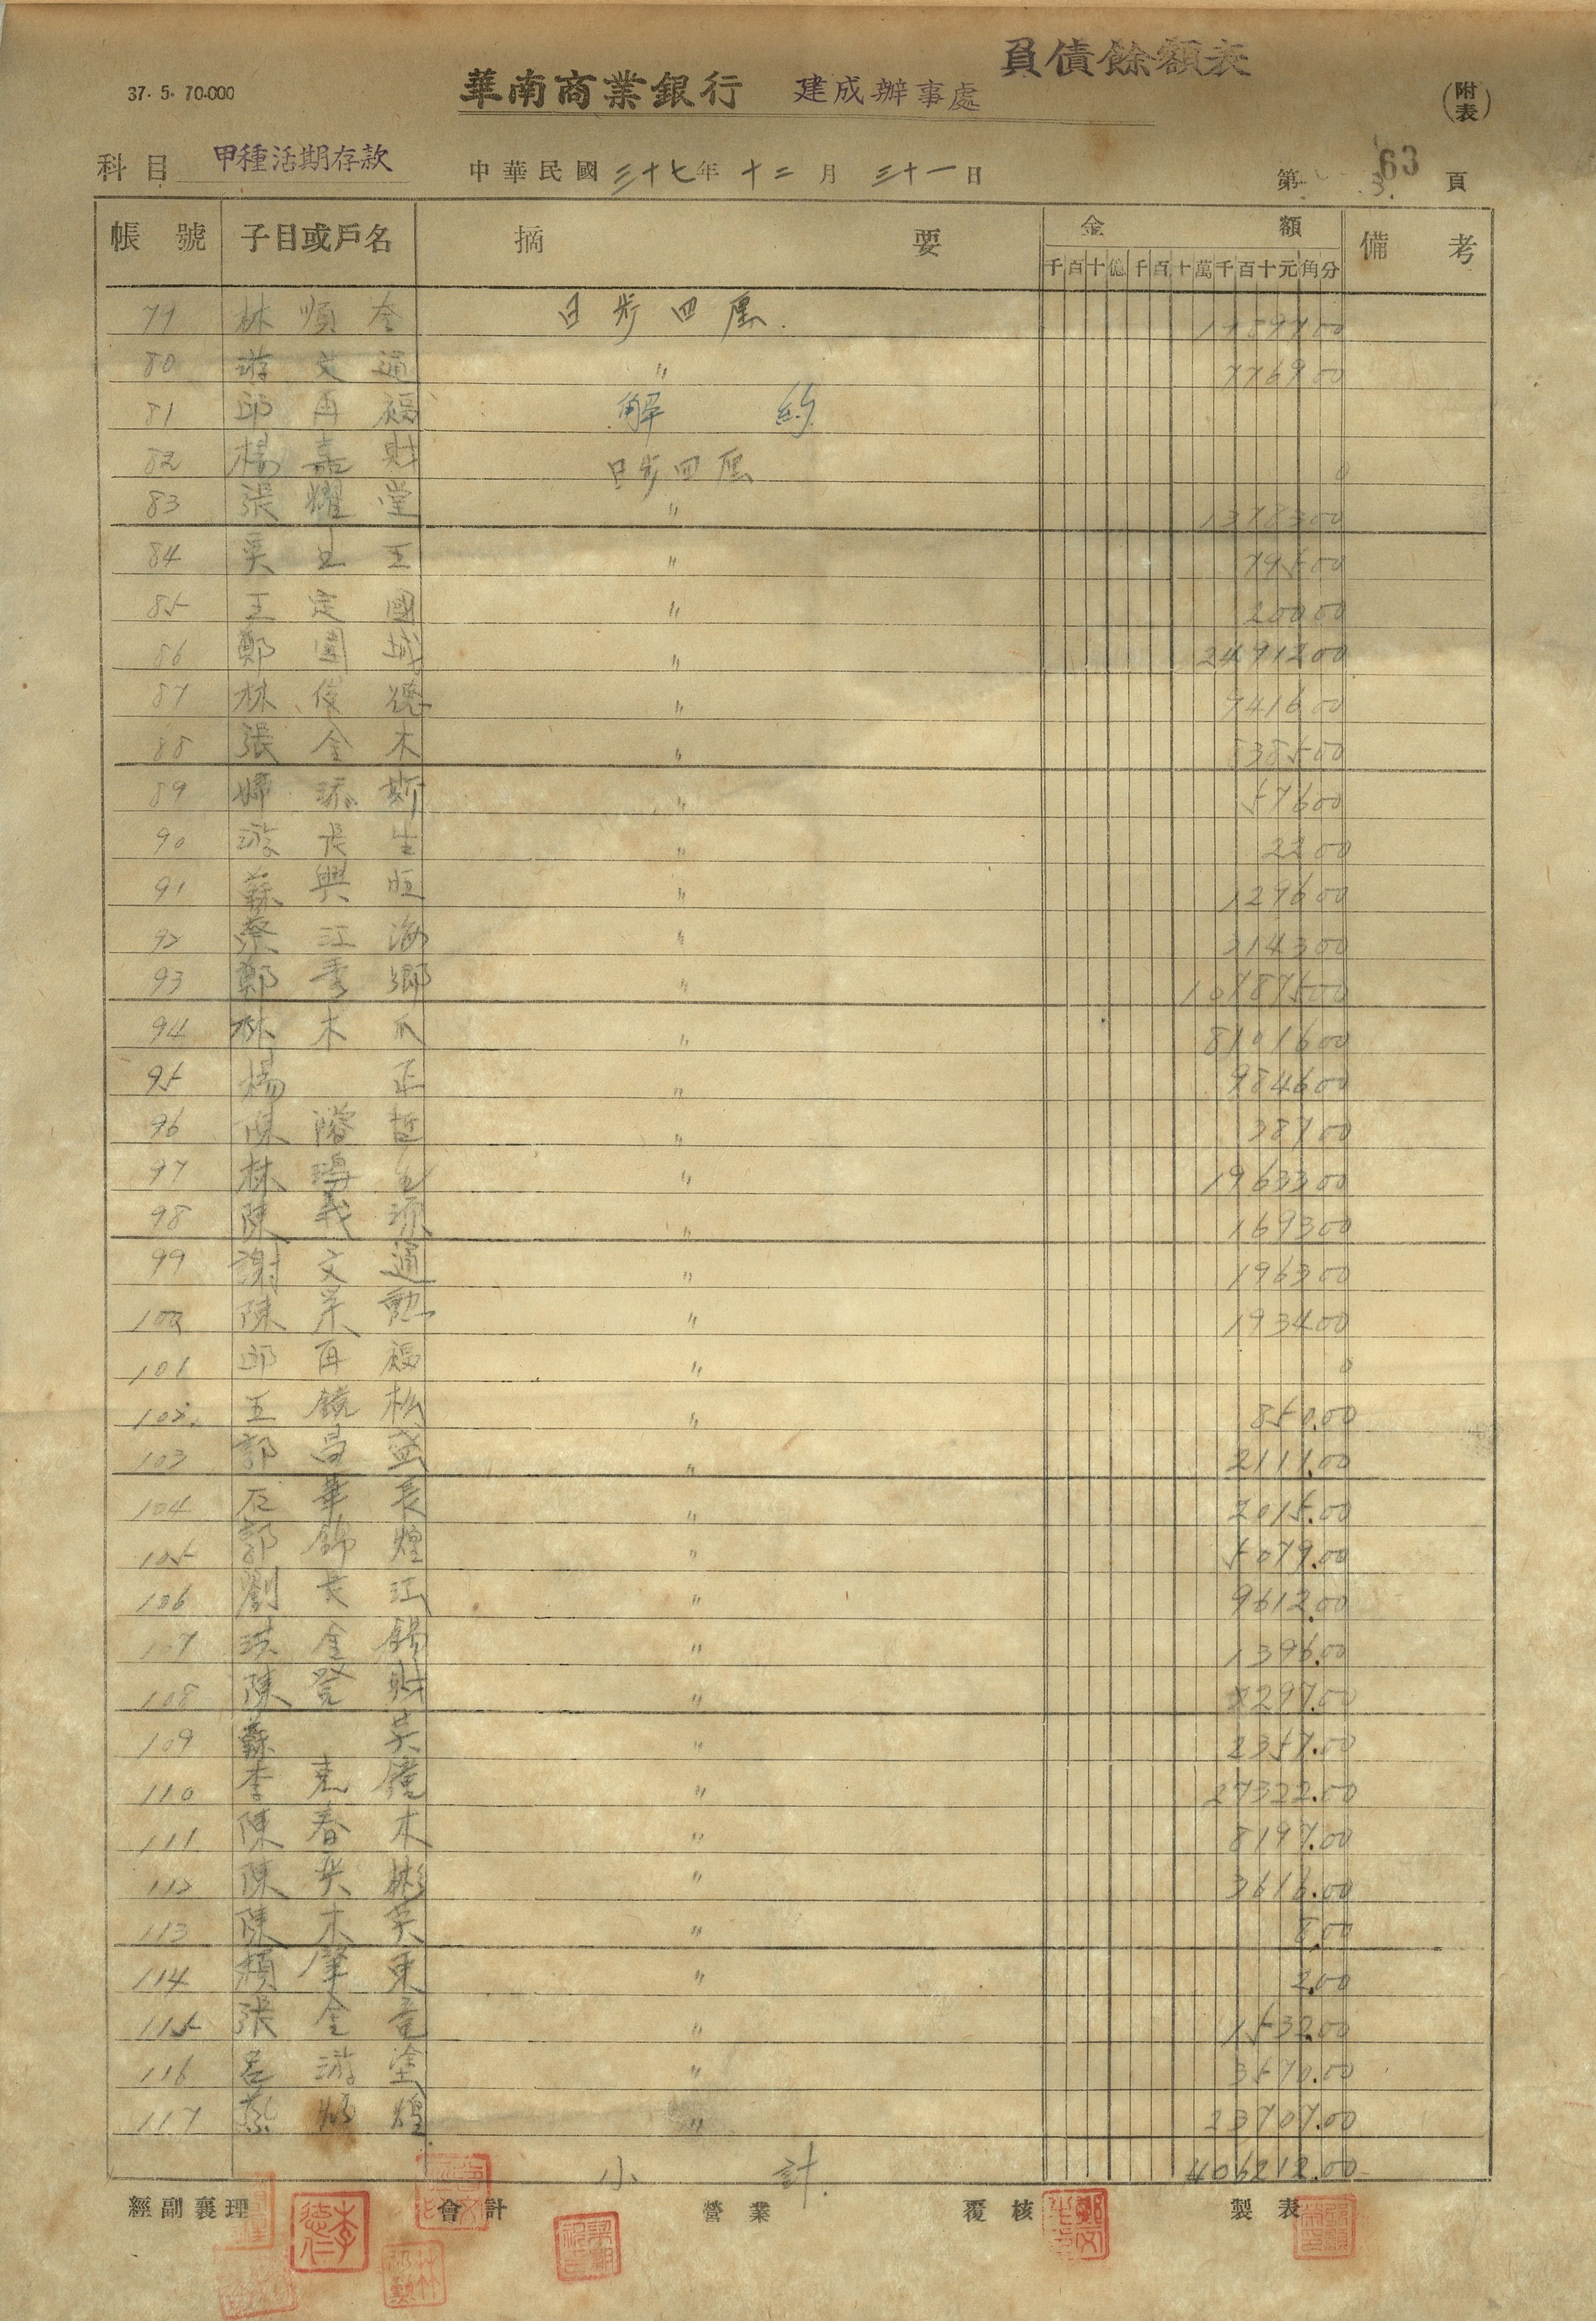 負債餘額表
37.5.70.000 華南商業銀行 建成辦事處 (附表)
科目 甲種活期存款 中華民國三十七年十二月三十一日 第 63 頁
帳號 子目或戶名 摘要 金額 備考
千百十億千百十萬千百十元角分
79 林順 日步四厘
80 游文通 〃 7769 00
81 邱再福 解約
82 楊嘉財 日步四厘 0
83 張耀堂 〃 13783 00
84 吳 王 〃 795 00
85 王定國 〃 200 00
86 鄭園城 〃 24912 00
87 林俊德 〃 7416 00
88 張金木 〃 8385 00
89 〃 576 00
90 游長生 〃 22 00
91 蘇興恒 〃 1296 00
92 蔡江海 〃 2143 00
93 鄭秀鄉 〃 107875 00
94 林木爪 〃 81016 00
95 楊正 〃 9846 00
96 陳 哲 〃 387 00
97 林 〃 19633 00
98 陳義源 〃 1693 00
99 謝文通 〃 1963 00
100 陳 勲 〃 1934 00
101 邱再福 〃 0
102. 王鏡松 〃 850.00
103 郭昌盛 〃 2111.00
104 石華長 〃 2015.00
105 郭錦煌 〃 5079.00
106 劉長江 〃 9612.00
107 洪金錫 〃 1396.00
108 陳登財 〃 2297.00
109 蘇英 〃 2357.00
110 李 鏡 〃 27322.00
111 陳春木 〃 8197.00
112 陳英彬 〃 3616.00
113 陳木英 〃 8.00
114 賴肇東 〃 2.00
115 張金童 〃 1532.00
116 呂游塗 〃 3570.00
117 蔡 煌 〃 23707.00
小計. 409212.00
經副襄理 會計 營業 覆核 製表
李德仁